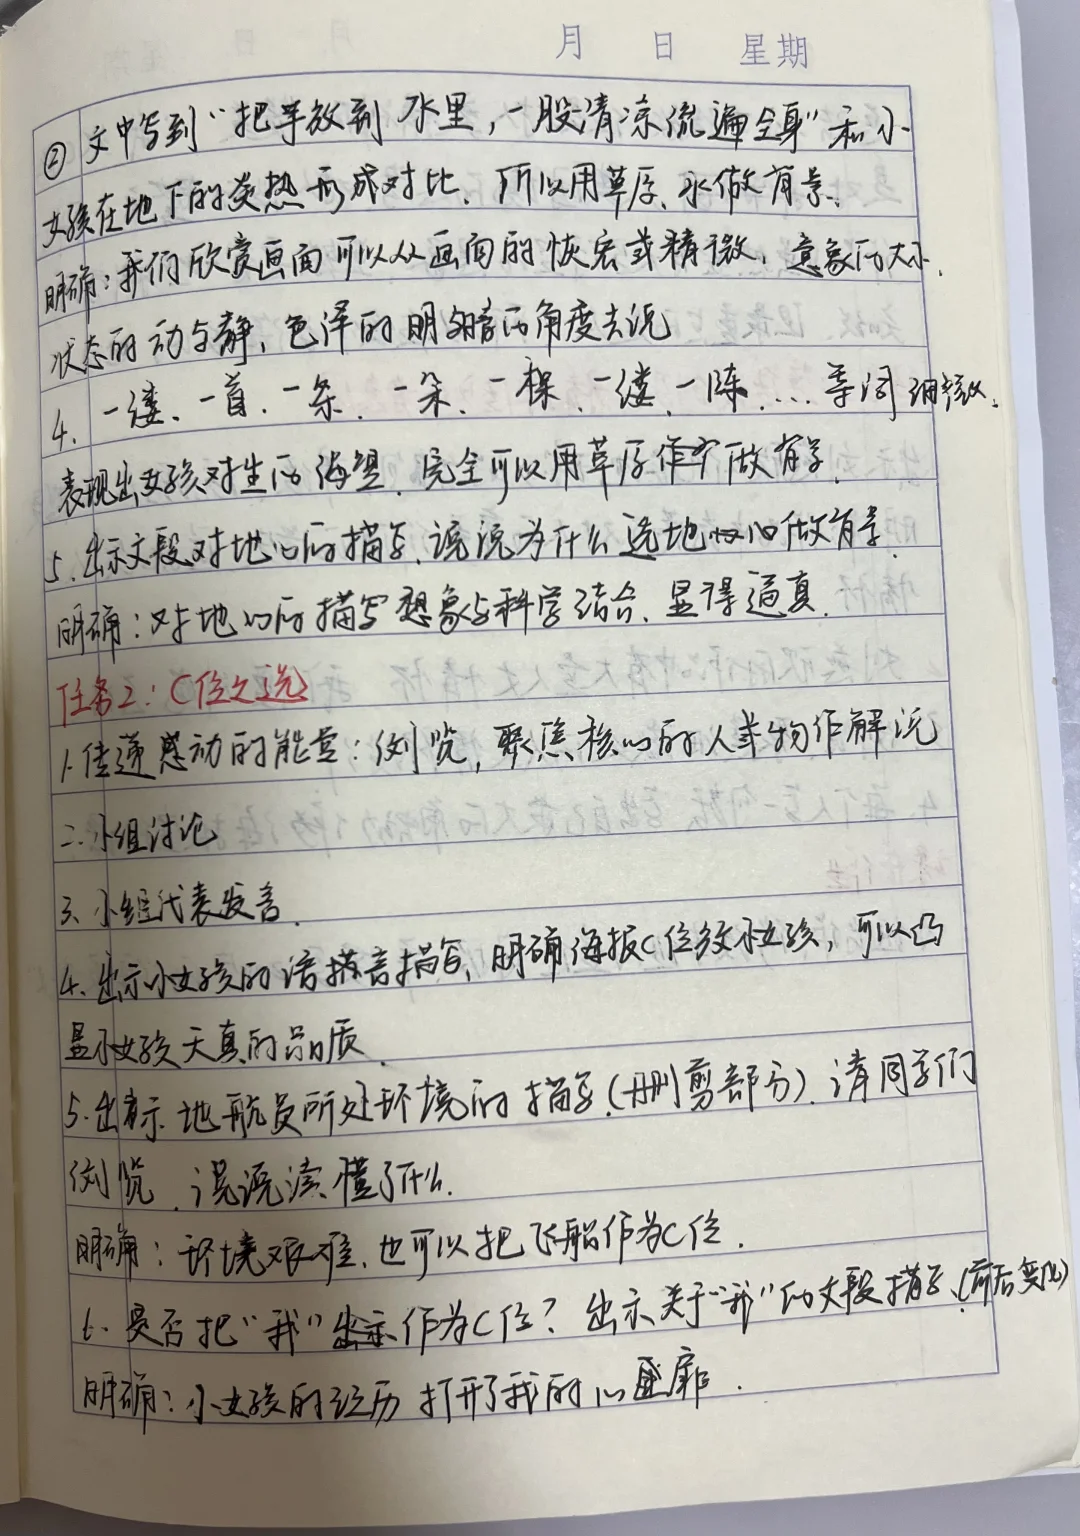 月 日 星期
② 文中写到“把手放到 水里，一股清凉流遍全身”和小
女孩在地下的炎热形成对比，所以用草原、水做背景。
明确：我们欣赏画面可以从画面的恢宏或精微，意象的大小、
状态的动与静，色泽的明与暗的角度去说
4. 一缕、一首、一条、一朵、一棵、一缕、一阵、... 等词 细微、
表现出女孩对生的渴望，完全可以用草原作 做背景
5. 出示文段对地心的描写，说说为什么选地心做背景
明确：对地心的描写想象与科学结合，显得逼真.
任务2：C位之选
1. 传递感动的能量：浏览，聚焦核心的人或物作解说
二. 小组讨论
3. 小组代表发言.
4. 出示小女孩的语言描写，明确海报C位放小女孩，可以凸
显小女孩天真的品质.
5. 出示 地航员所处环境的描写（删剪部分）. 请同学们
浏览，说说读懂了什么.
明确：环境艰难，也可以把飞船作为C位.
6. 是否把“我”出示作为C位？出示关于“我”的文段描写.（前后变化）
明确：小女孩的经历 打开了我的心 扉.